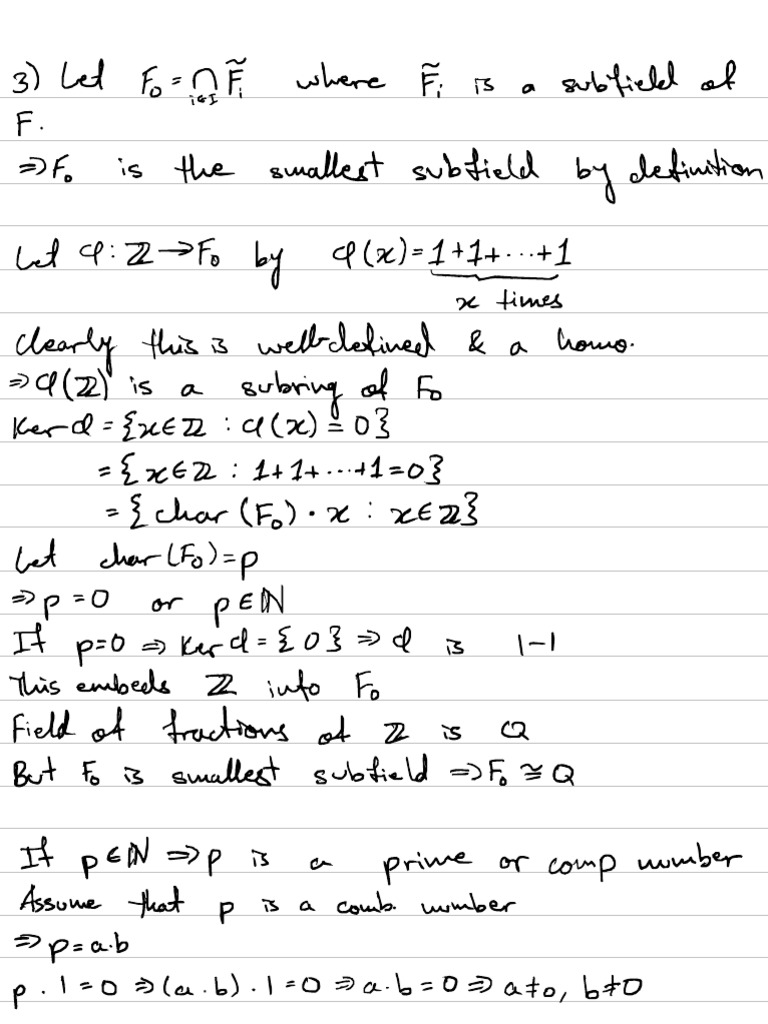 3) Let F₀ = ⋂ F̃ᵢ where F̃ᵢ is a subfield of
i∈I
F.
⇒ F₀ is the smallest subfield by definition
Let φ: ℤ → F₀ by φ(x) = 1+1+⋯+1
x times
Clearly this is well-defined & a homo.
⇒ φ(ℤ) is a subring of F₀
Ker φ = {x ∈ ℤ : φ(x) = 0}
= {x ∈ ℤ : 1+1+⋯+1 = 0}
= {char (F₀) · x : x ∈ ℤ}
Let char (F₀) = p
⇒ p = 0 or p ∈ ℕ
If p=0 ⇒ Ker φ = {0} ⇒ φ is 1-1
This embeds ℤ into F₀
Field of fractions of ℤ is Q
But F₀ is smallest subfield ⇒ F₀ ≅ Q
If p ∈ ℕ ⇒ p is a prime or comp number
Assume that p is a comb. number
⇒ p = a·b
p · 1 = 0 ⇒ (a · b) · 1 = 0 ⇒ a · b = 0 ⇒ a≠0, b≠0